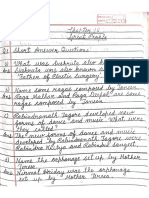 Chapter 15
Great People
Q1 Short Answer Questions
1) What was Sushruta also known as?
Ans Sushruta was also known as the
"Father of Plastic Surgery"
2) Name some ragas composed by Tansen
Ans Megh Malhar and Raga Todi are some
ragas composed by Tansen.
3) Rabindranath Tagore developed new
forms of dance and music. What were
they called?
Ans The new forms of dance and music
developed by Rabindranath Tagore were
Rabindra Nritya and Rabindra Sangeet.
4) Name the orphanage set up by Mother
Teresa.
Ans Nirmal Hriday was the orphanage
set up by Mother Teresa.